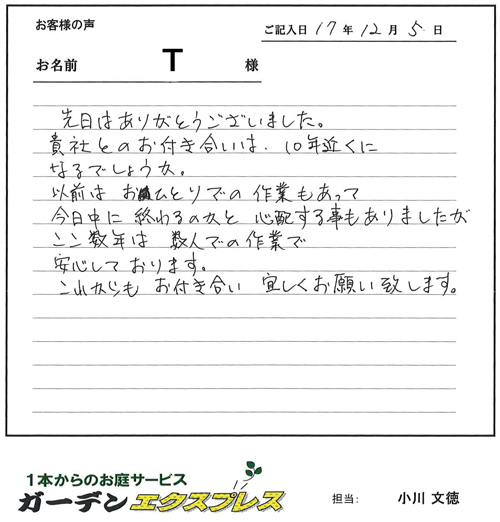 お客様の声
ご記入日 17 年 12 月 5 日
お名前 T 様
先日はありがとうございました。
貴社とのお付き合いは、10年近くに
なるでしょうか。
以前は おひとりでの 作業もあって
今日中に 終わるのかと 心配する事もありましたが
ここ数年は 数人での作業で
安心しております。
これからも お付き合い 宜しくお願い致します。
1本からのお庭サービス
ガーデンエクスプレス
担当: 小川 文徳